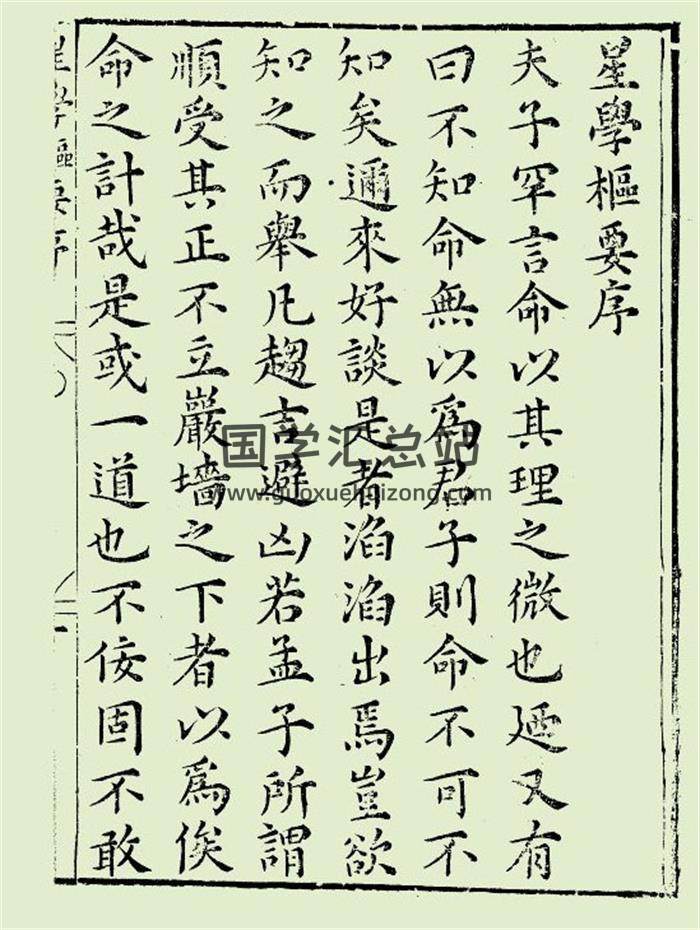 星學樞要序
夫子罕言命以其理之微也廼又有
曰不知命無以爲君子則命不可不
知矣邇來好談是者滔滔出焉豈欲
知之而舉凡趨吉避凶若孟子所謂
順受其正不立巖墻之下者以爲俟
命之計哉是或一道也不佞固不敢
星學樞要序
国学汇总站
www.guoxuehuizong.com